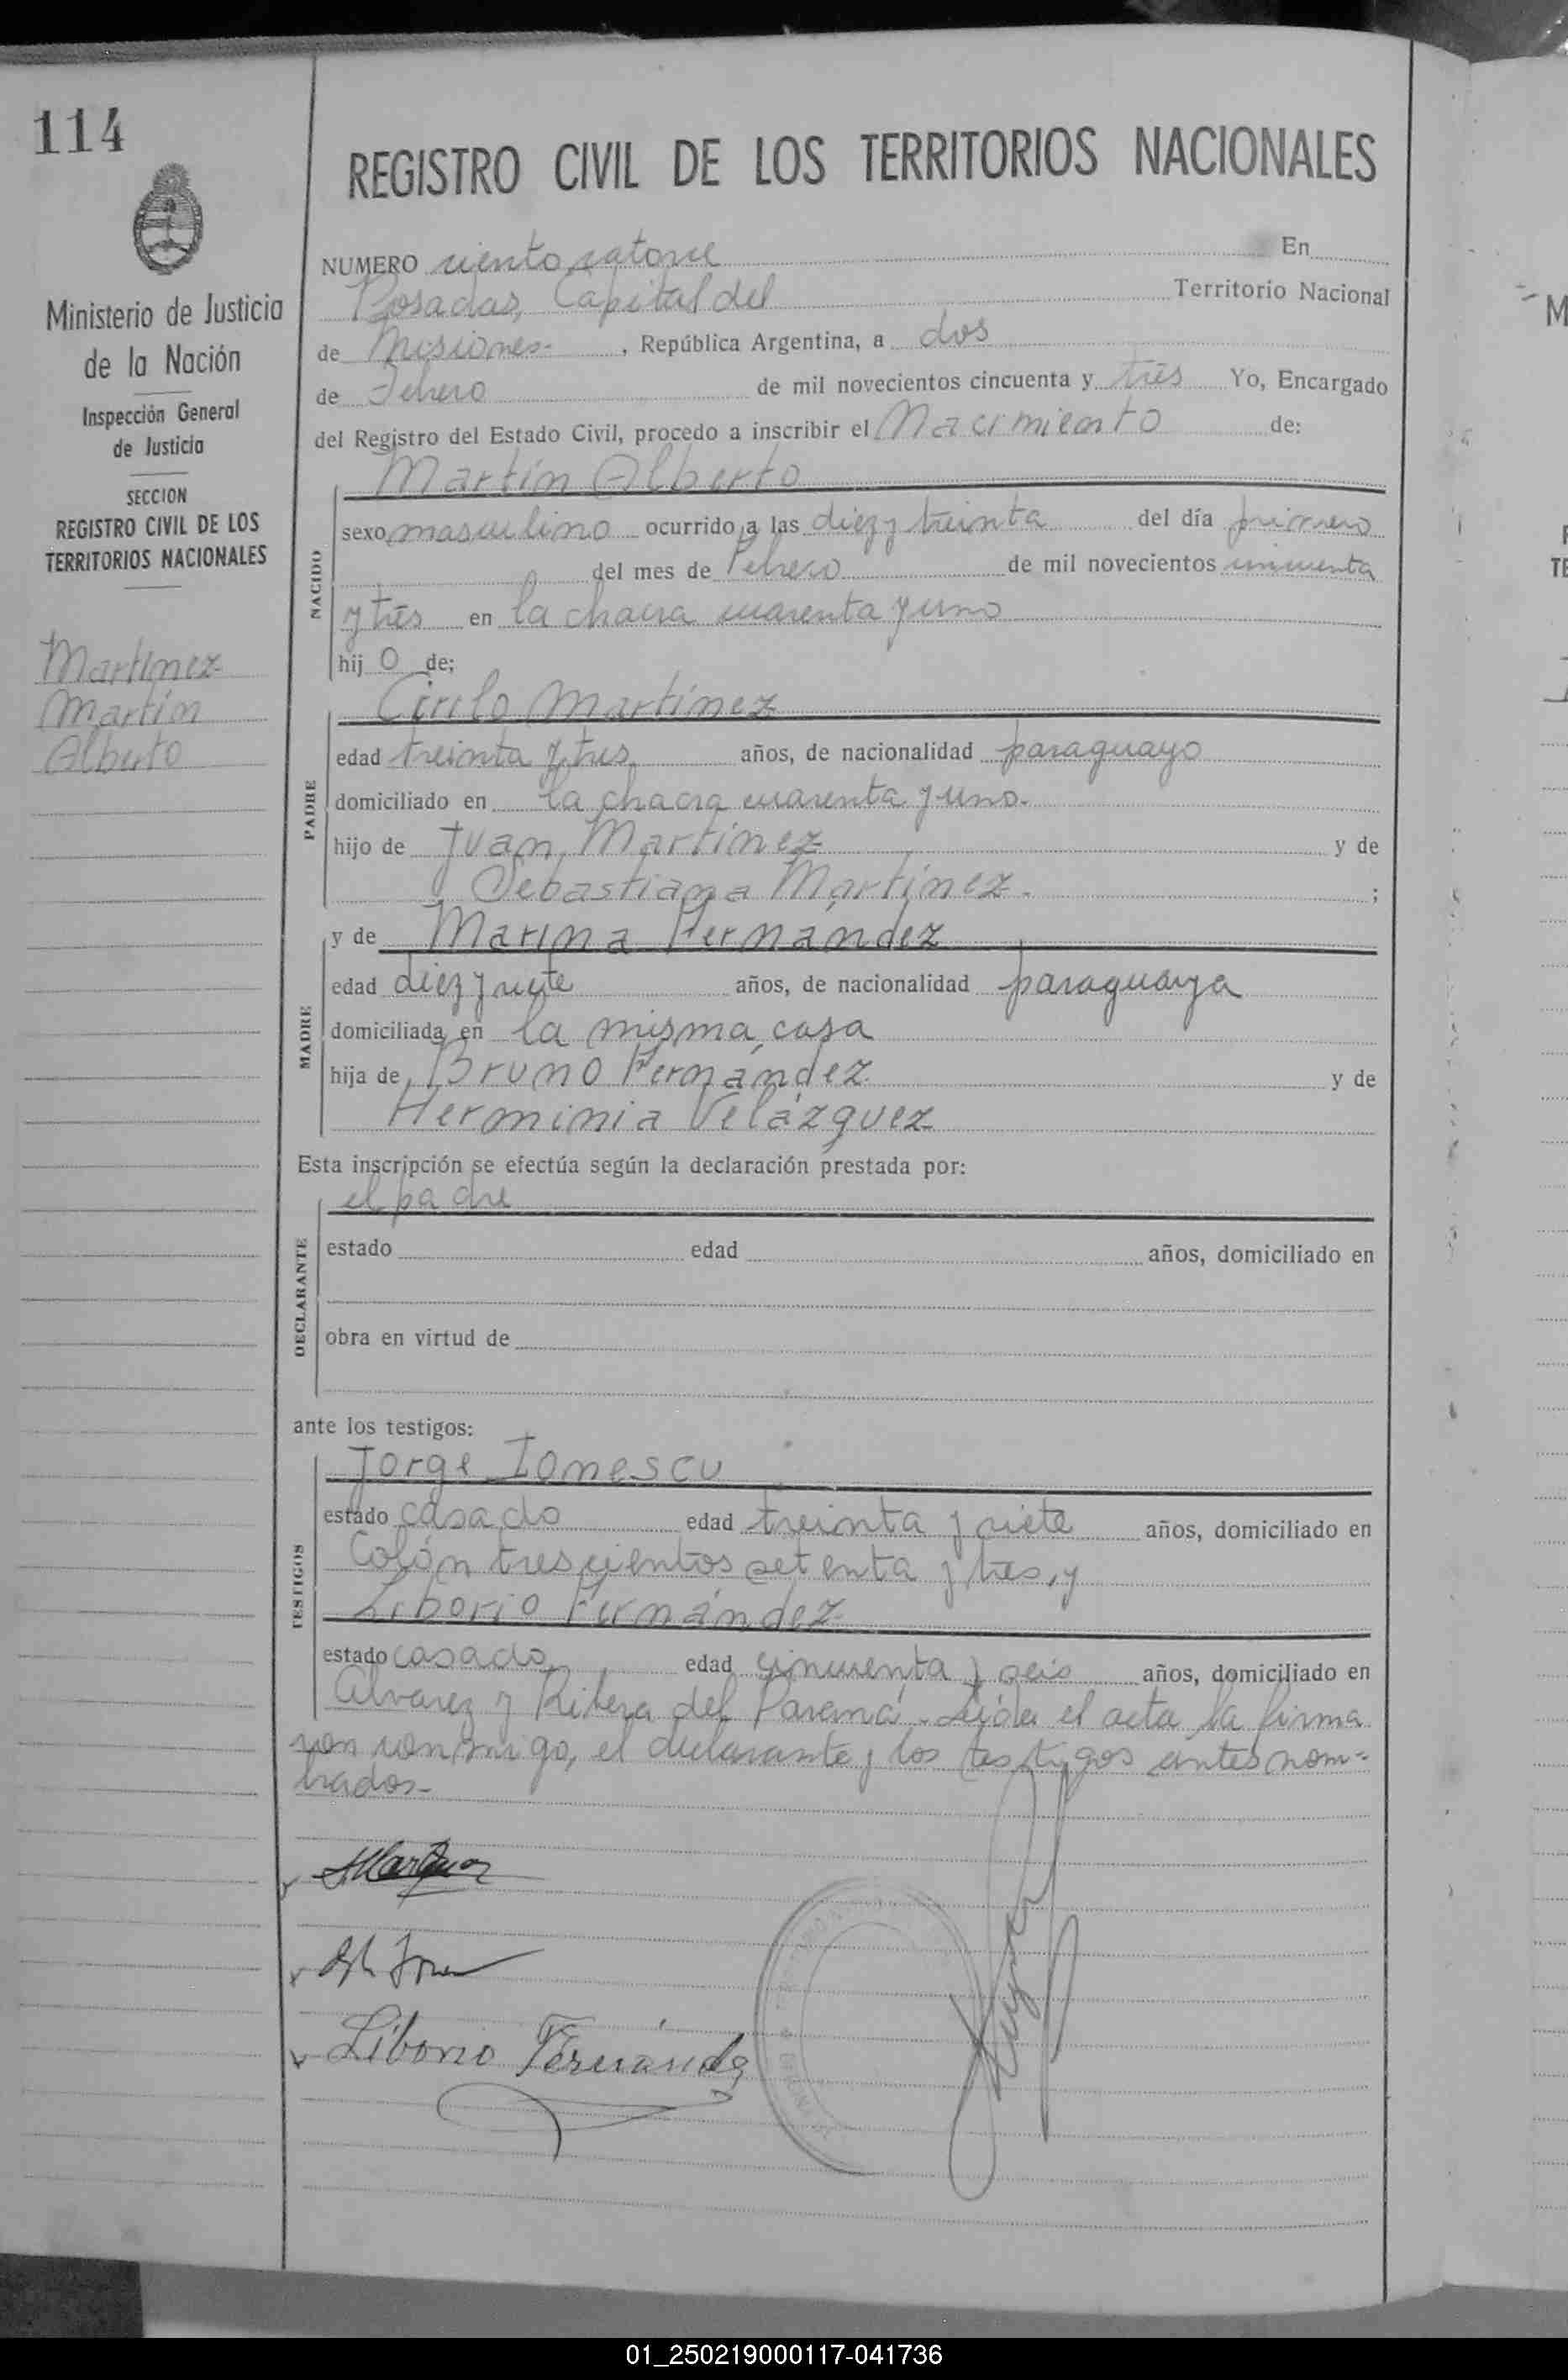 114
REGISTRO CIVIL DE LOS TERRITORIOS NACIONALES
Ministerio de Justicia
de la Nación
Inspección General
de Justicia
SECCION
REGISTRO CIVIL DE LOS
TERRITORIOS NACIONALES
Martínez
Martín
Alberto
NUMERO ciento catorce En
Posadas, Capital del Territorio Nacional
de Misiones- , República Argentina, a dos
de Febrero de mil novecientos cincuenta y tres Yo, Encargado
del Registro del Estado Civil, procedo a inscribir el Nacimiento de:
NACIDO
Martín Alberto
sexo masculino ocurrido a las diez y treinta del día primero
del mes de Febrero de mil novecientos cincuenta
y tres en la chacra cuarenta y uno
hij o de;
PADRE
Cirilo Martínez
edad treinta y tres años, de nacionalidad paraguayo
domiciliado en la chacra cuarenta y uno.
hijo de Juan Martínez y de
Sebastiana Martínez. ;
MADRE
y de Marina Fernández
edad diez y siete años, de nacionalidad paraguaya
domiciliada en la misma casa
hija de Bruno Fernández y de
Herminia Velázquez
Esta inscripción se efectúa según la declaración prestada por:
DECLARANTE
el padre
estado edad años, domiciliado en
obra en virtud de
ante los testigos:
TESTIGOS
Jorge Ionescu
estado casado edad treinta y siete años, domiciliado en
Colón trescientos setenta y tres, y
Liborio Fernández
estado casado edad cincuenta y seis años, domiciliado en
Alvarez y Ribera del Paraná. Leída el acta la firma
ron conmigo, el declarante y los testigos antes nom=
brados-
Liborio Fernández
01_250219000117-041736